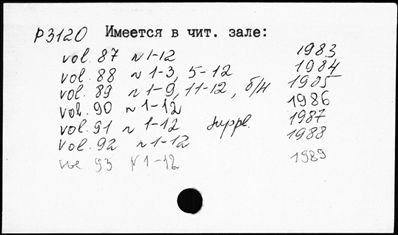 P3120 Имеется в чит. зале:
vol. 87 N 1-12 1983
vol. 88 N 1-3, 5-12 1984
vol. 89 N 1-9, 11-12, б/н 1985
vol. 90 N 1-12 1986
vol. 91 N 1-12 Suppl. 1987
vol. 92 N 1-12 1988
vol 93 N 1-12 1989